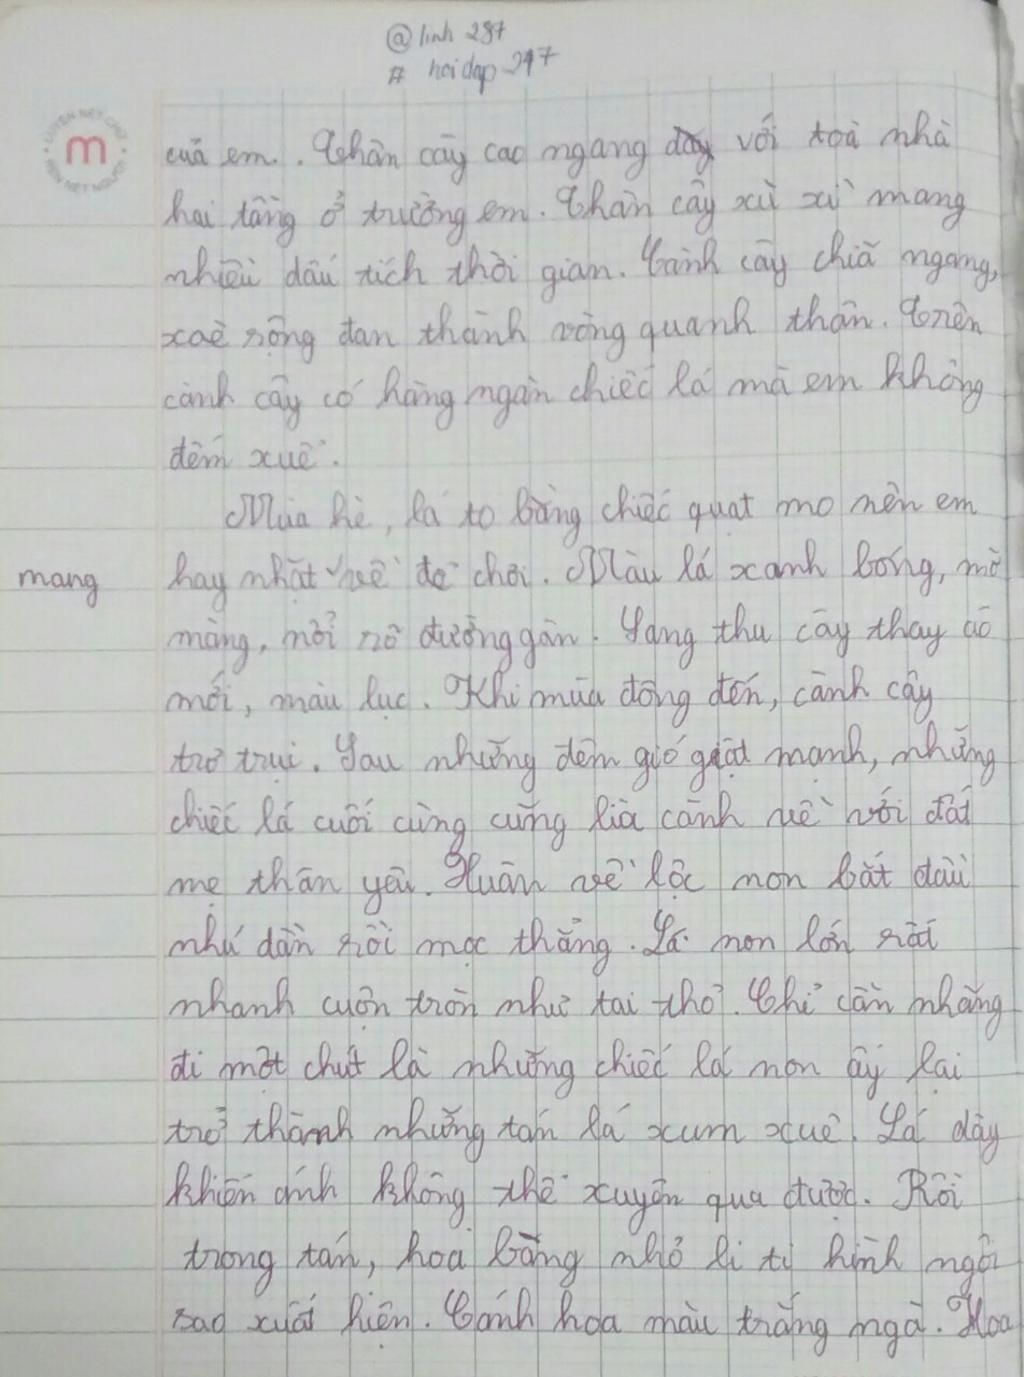 @linh 287
# hoidap 247
LUYỆN NÉT CHỮ
m
RÈN NẾT NGƯỜI
của em. Thân cây cao ngang với toà nhà
hai tầng ở trường em. Thân cây xù xì mang
nhiều dấu tích thời gian. Cành cây chĩa ngang,
xoè rộng đan thành vòng quanh thân. Trên
cành cây có hàng ngàn chiếc lá mà em không
đếm xuể.
Mùa hè, lá to bằng chiếc quạt mo nên em
mang
hay nhặt về để chơi. Màu lá xanh bóng, mỡ
màng, nổi rõ đường gân. Sang thu cây thay áo
mới, màu lục. Khi mùa đông đến, cành cây
trơ trụi. Sau những đêm gió giật mạnh, những
chiếc lá cuối cùng cũng lìa cành về với đất
mẹ thân yêu. Xuân về lộc non bắt đầu
nhú dần rồi mọc thẳng. Lá non lớn rất
nhanh cuộn tròn như tai thỏ. Chỉ cần nhãng
đi một chút là những chiếc lá non ấy lại
trở thành những tán lá xum xuê. Lá dày
khiến ánh không thể xuyên qua được. Rồi
trong tán, hoa bàng nhỏ li ti hình ngôi
sao xuất hiện. Cánh hoa màu trắng ngà. Hoa